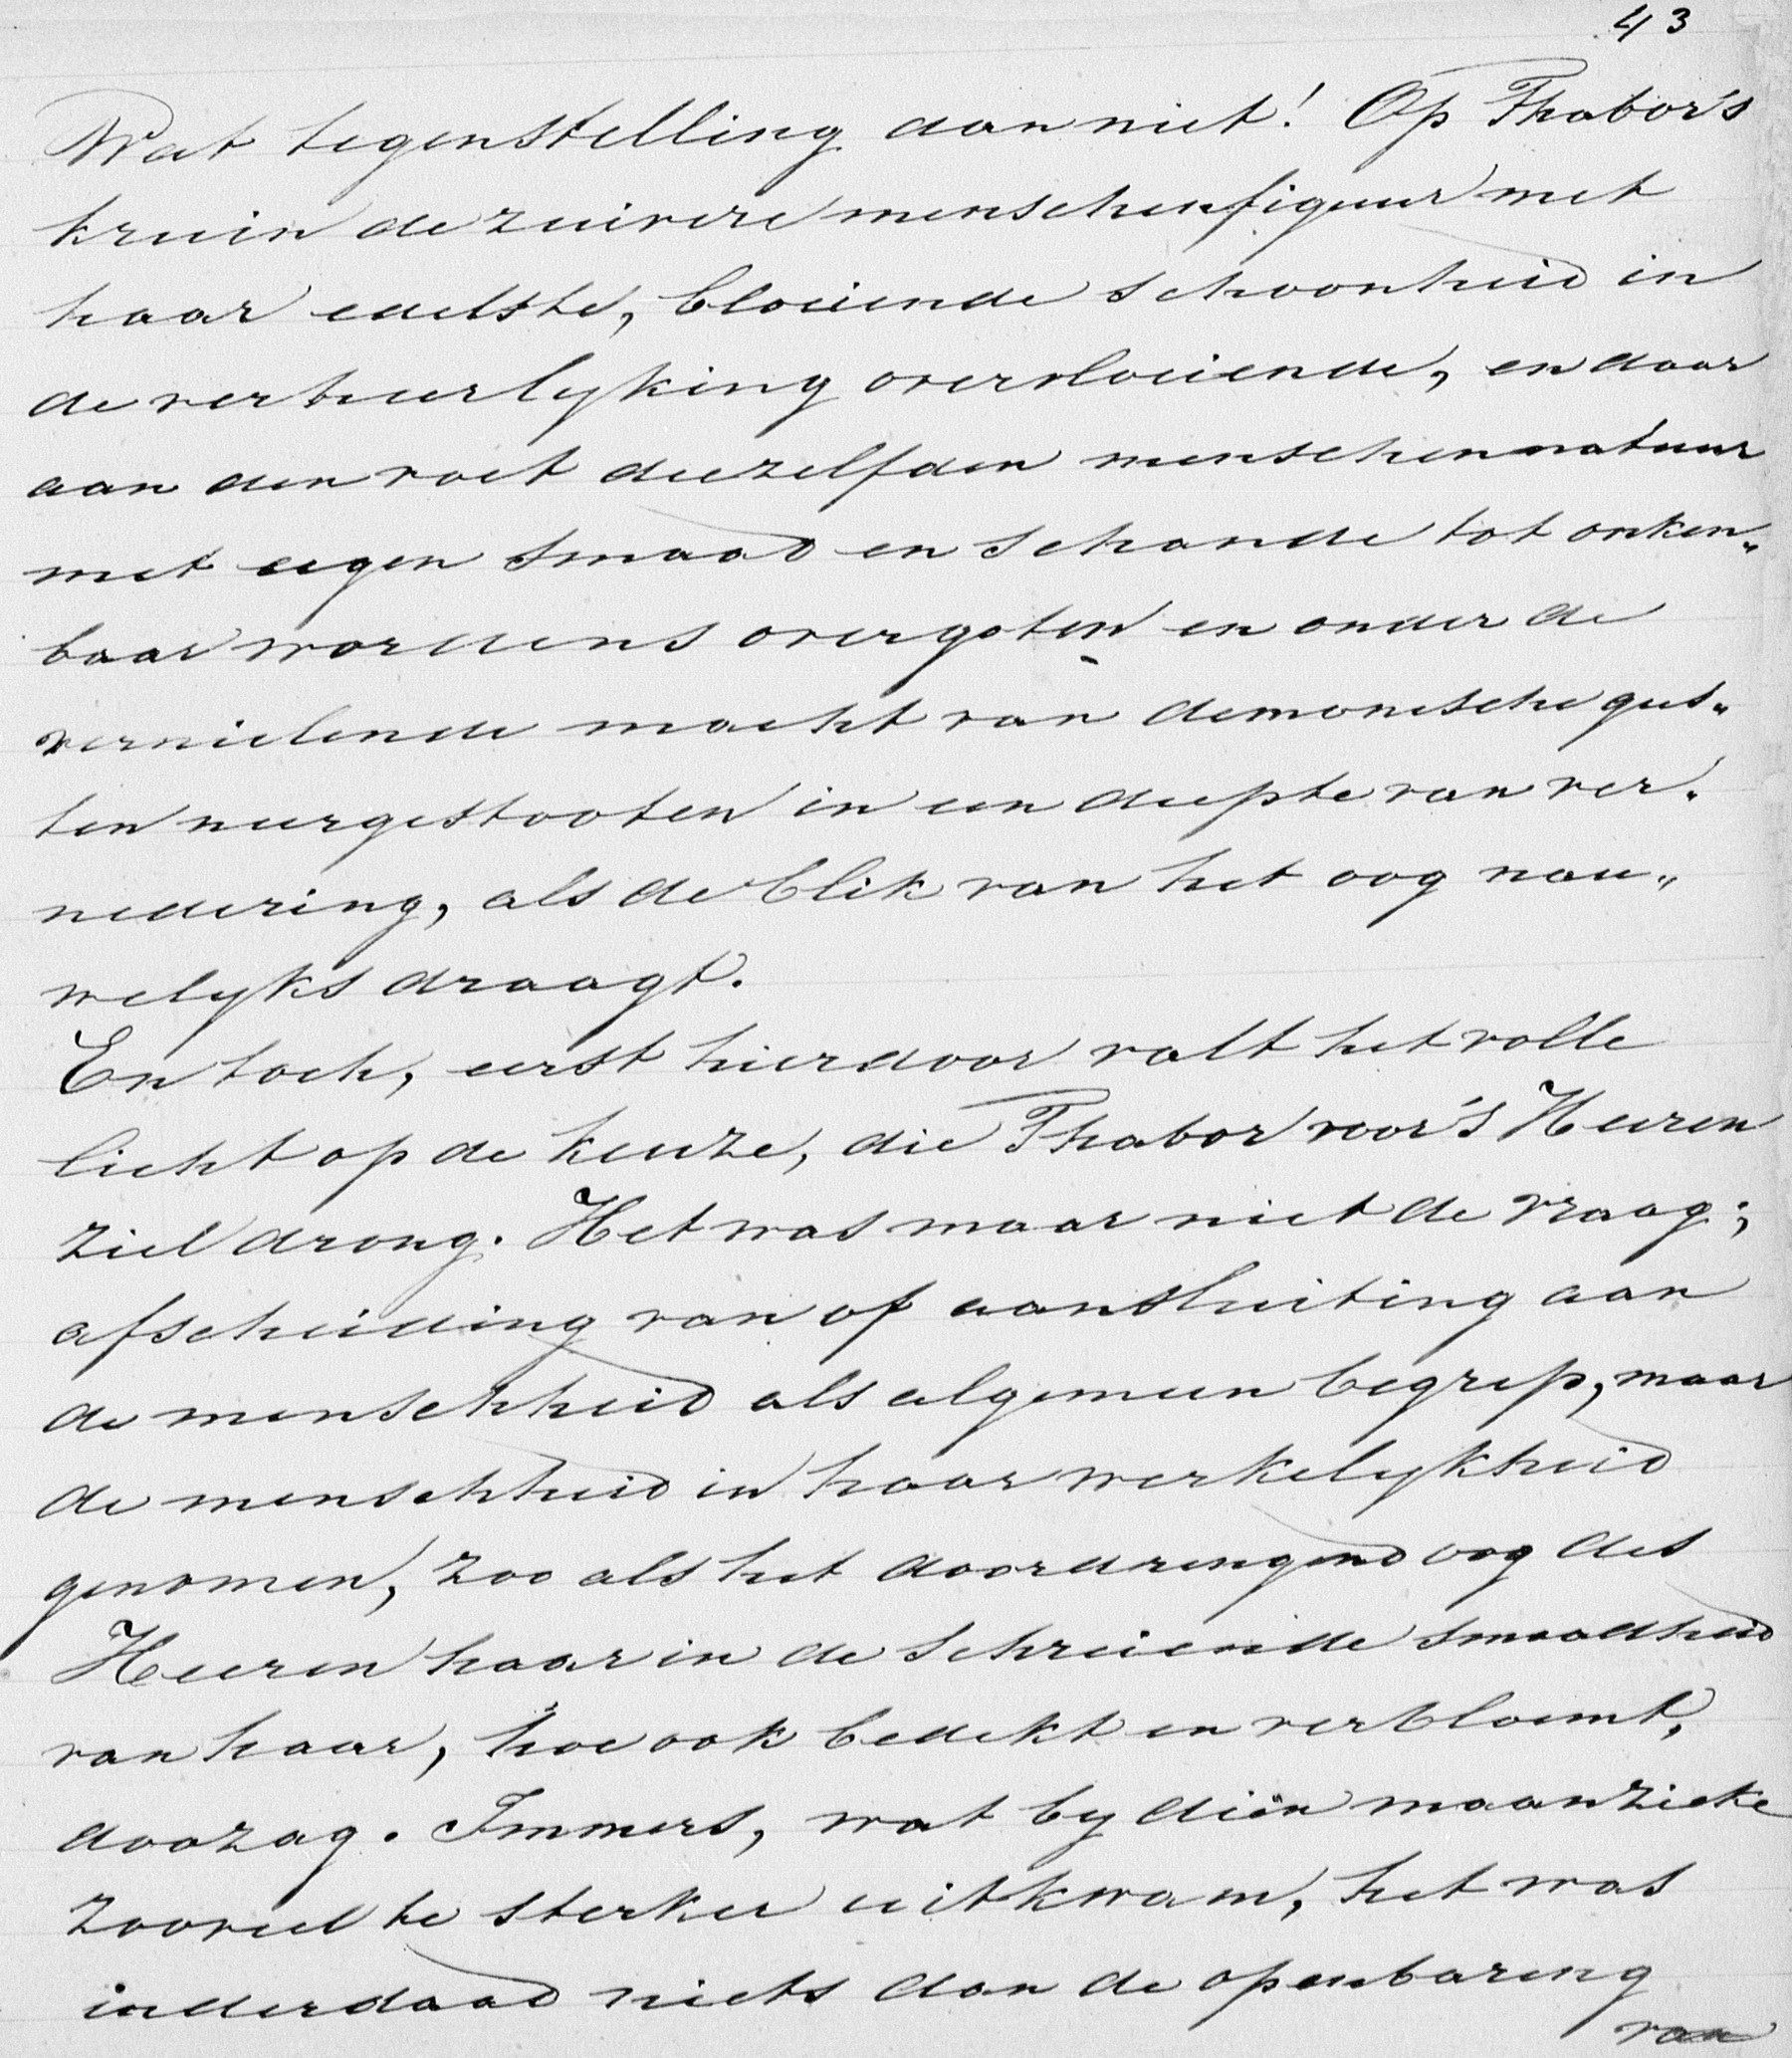 43
Wat tegenstelling dan niet! Op Thabor's
kruin de zuivere menschenfiguur met
haar edelste, bloeiende schoonheid in
de verheerlyking overvloeiende, en daar
aan den voet diezelfden menschennatuur
met eigen smaad en schande tot onken„
baar wordens overgoten en onder de
vernielende macht van demonische gees„
ten neergestooten in een diepte van ver„
nedering, als de blik van het oog nau„
welyks draagt.
En toch, eerst hierdoor valt het volle
licht op de keuze, die Thabor voor 's Heeren
ziel drong. Het was maar niet de vraag;
afscheiding van of aansluiting aan
de menschheid als algemeen begrip, maar
de menschheid in haar werkelykheid
genomen, zoo als het doordringend oog des
Heeren haar in de schreiende smaadheid
van haar, hoe ook bedekt en verbloemt,
doozag. Immers, wat by dien maanzieke
zooveel te sterker uitkwam, het was
inderdaad niets dan de openbaring
van